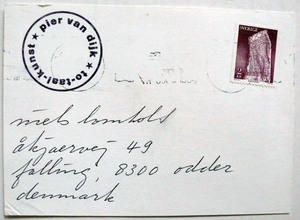 ★ pier van dijk ★ to-taal-kunst
SVERIGE
75
niels lomholt
åkjaervej 49
falling, 8300 odder
denmark